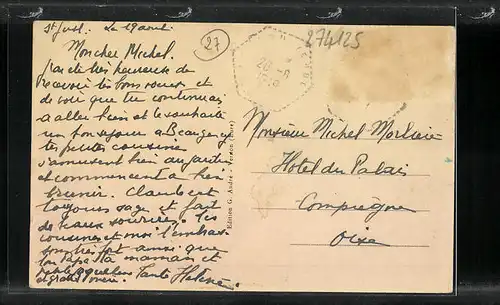 St Just. Le 19 aout
27
274125
Mon cher Michel.
J'ai été très heureuse de
recevoir tes bons voeux et
de voir que tu continuais
a aller bien et te souhaite
un bon sejour a Beaugency
tes petites cousines
s'amusent bien au jardin
et commencent a bien
brunir. Claude est
toujours sage et fait
de beaux sourires. Tes
cousines et moi t'embrassons
très fort ainsi que
ton Papa ta maman et
Tante Helene.
Edition G. André
Monsieur Michel
Hotel du Palais
Compiegne
Oise